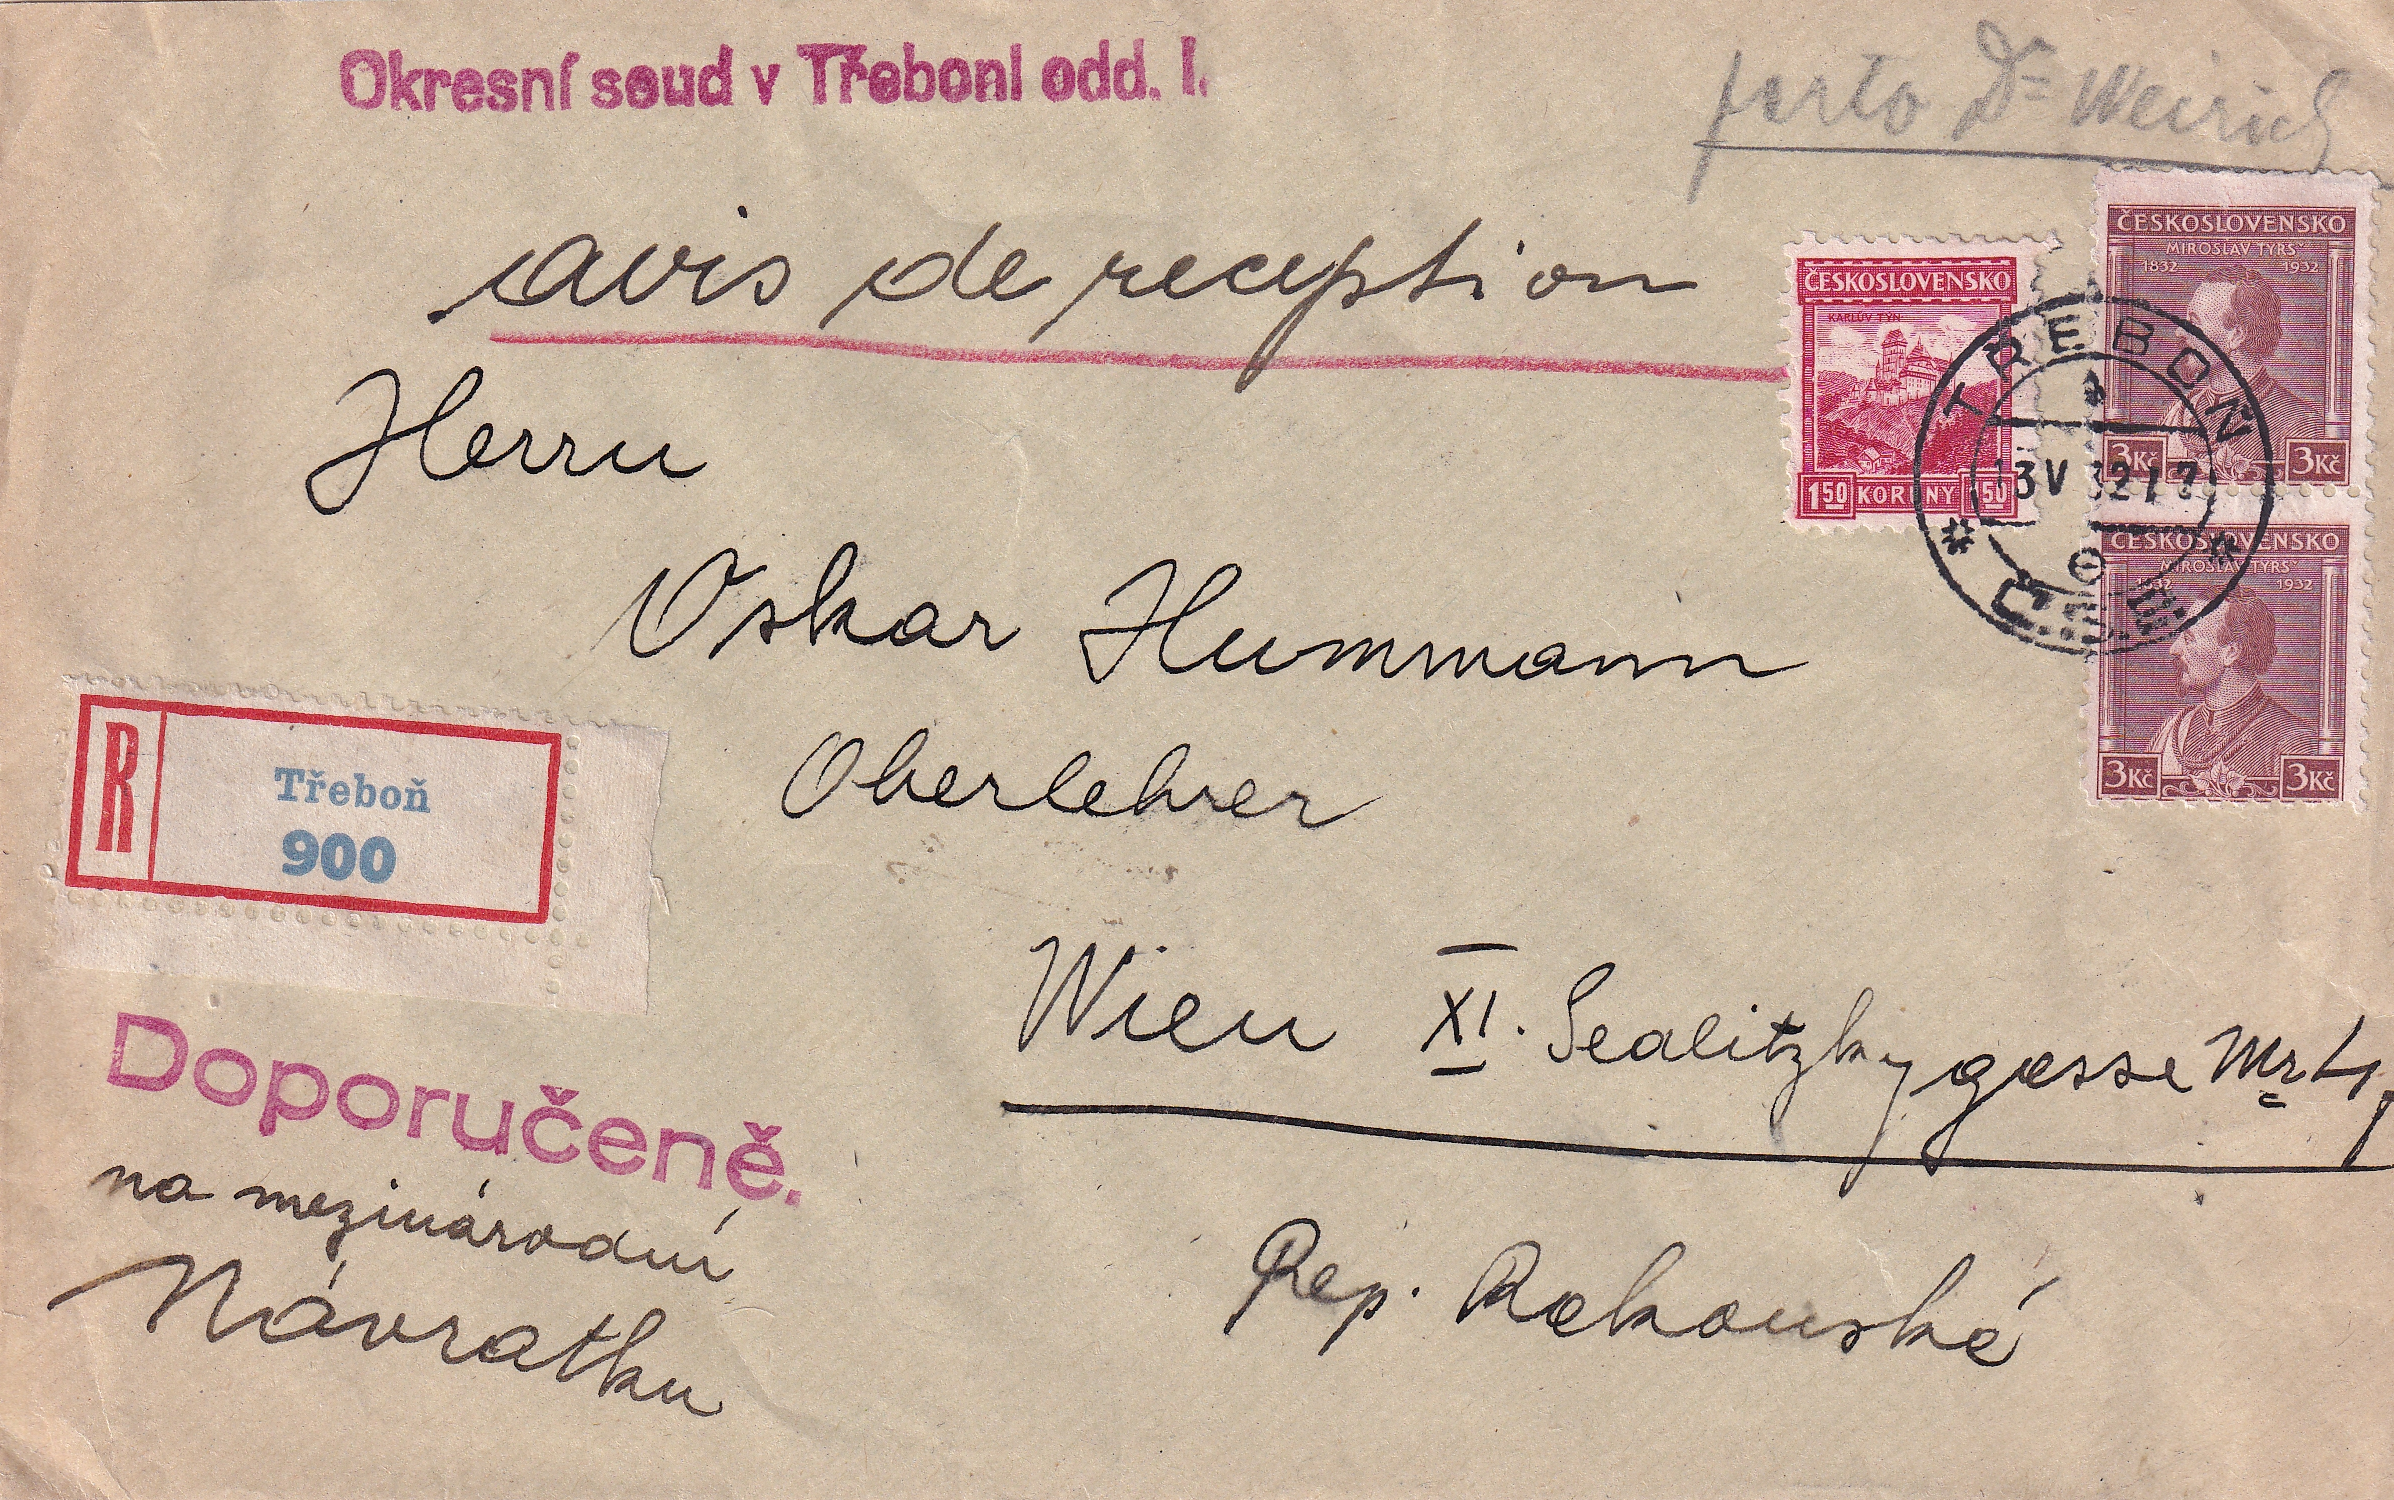 Okresní soud v Třeboni odd. I.
porto Dr Weirich
avis de reception
ČESKOSLOVENSKO
KARLŮV TÝN
150 KORUNY 150
ČESKOSLOVENSKO
MIROSLAV TYRŠ
1832 1932
3Kč 3Kč
TŘEBOŇ
13 V 32 17
Č.S.R.
ČESKOSLOVENSKO
MIROSLAV TYRŠ
1832 1932
3Kč 3Kč
Herrn
Oskar Hummann
Oberlehrer
R
Třeboň
900
Wien XI. Sealitzkygasse Nr 4,
Doporučeně.
na mezinárodní
Návratku
Rep. Rakouské